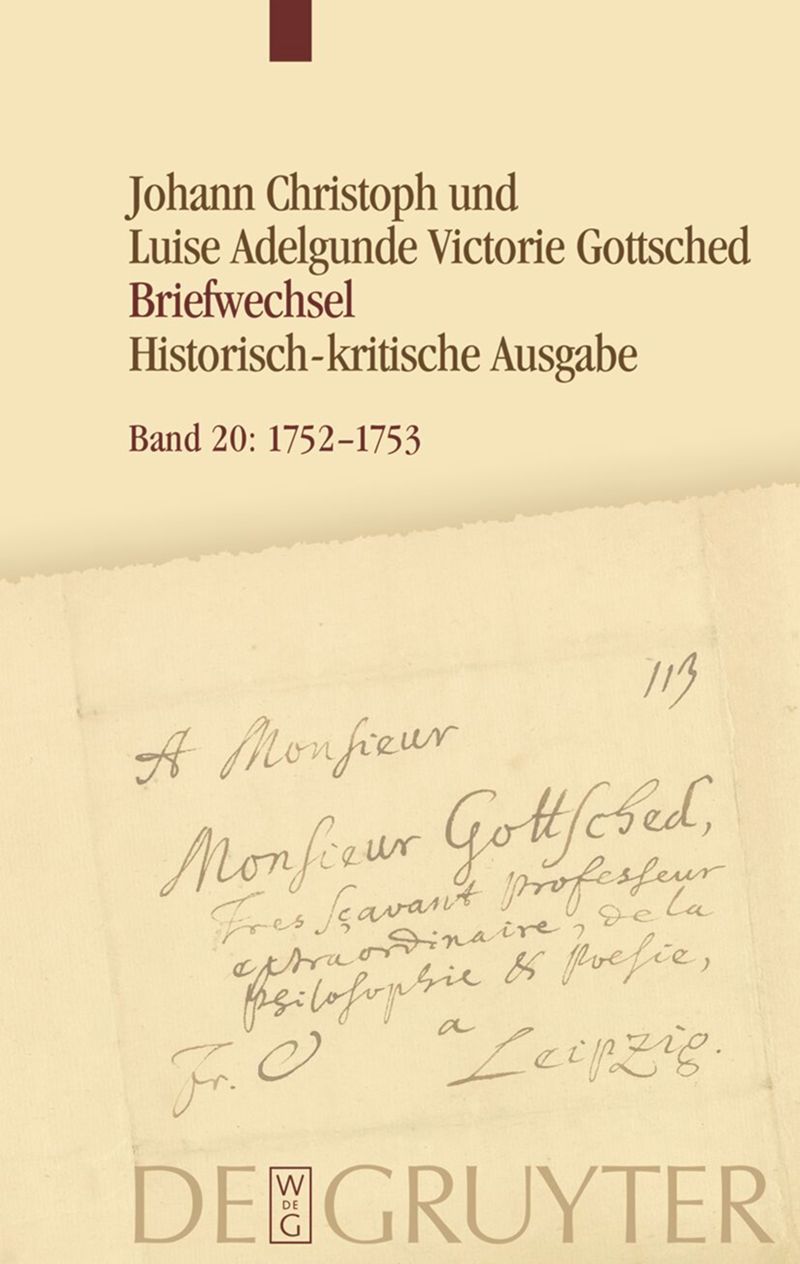 Johann Christoph und
Luise Adelgunde Victorie Gottsched
Briefwechsel
Historisch-kritische Ausgabe
Band 20: 1752–1753
113
A Monsieur
Monsieur Gottsched,
Tres sçavant professeur
extraordinaire, de la
philosophie & poesie,
a
Fr. Leipzig.
DE GRUYTER
W
DE
G